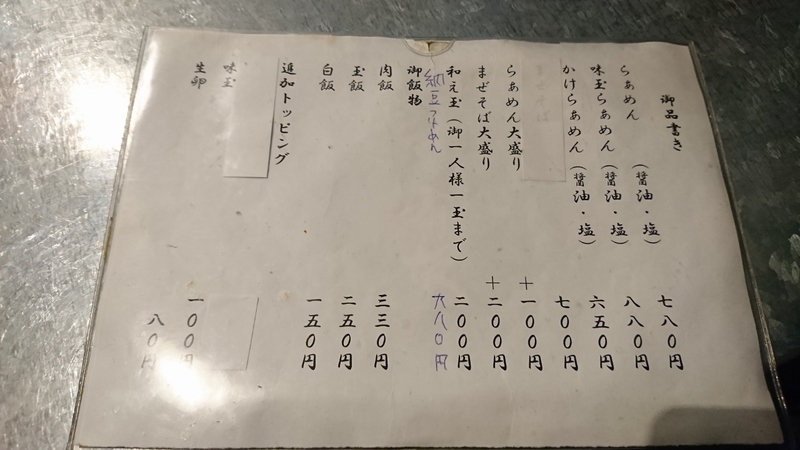 御品書き
らぁめん （醤油・塩） 七八〇円
味玉らぁめん （醤油・塩） 八八〇円
かけらぁめん （醤油・塩） 六五〇円
七〇〇円
らぁめん大盛り ＋一〇〇円
まぜそば大盛り ＋二〇〇円
和え玉（御一人様一玉まで） 二〇〇円
納豆つけめん 九八〇円
御飯物
肉飯 三三〇円
玉飯 二五〇円
白飯 一五〇円
追加トッピング
味玉 一〇〇円
生卵 八〇円